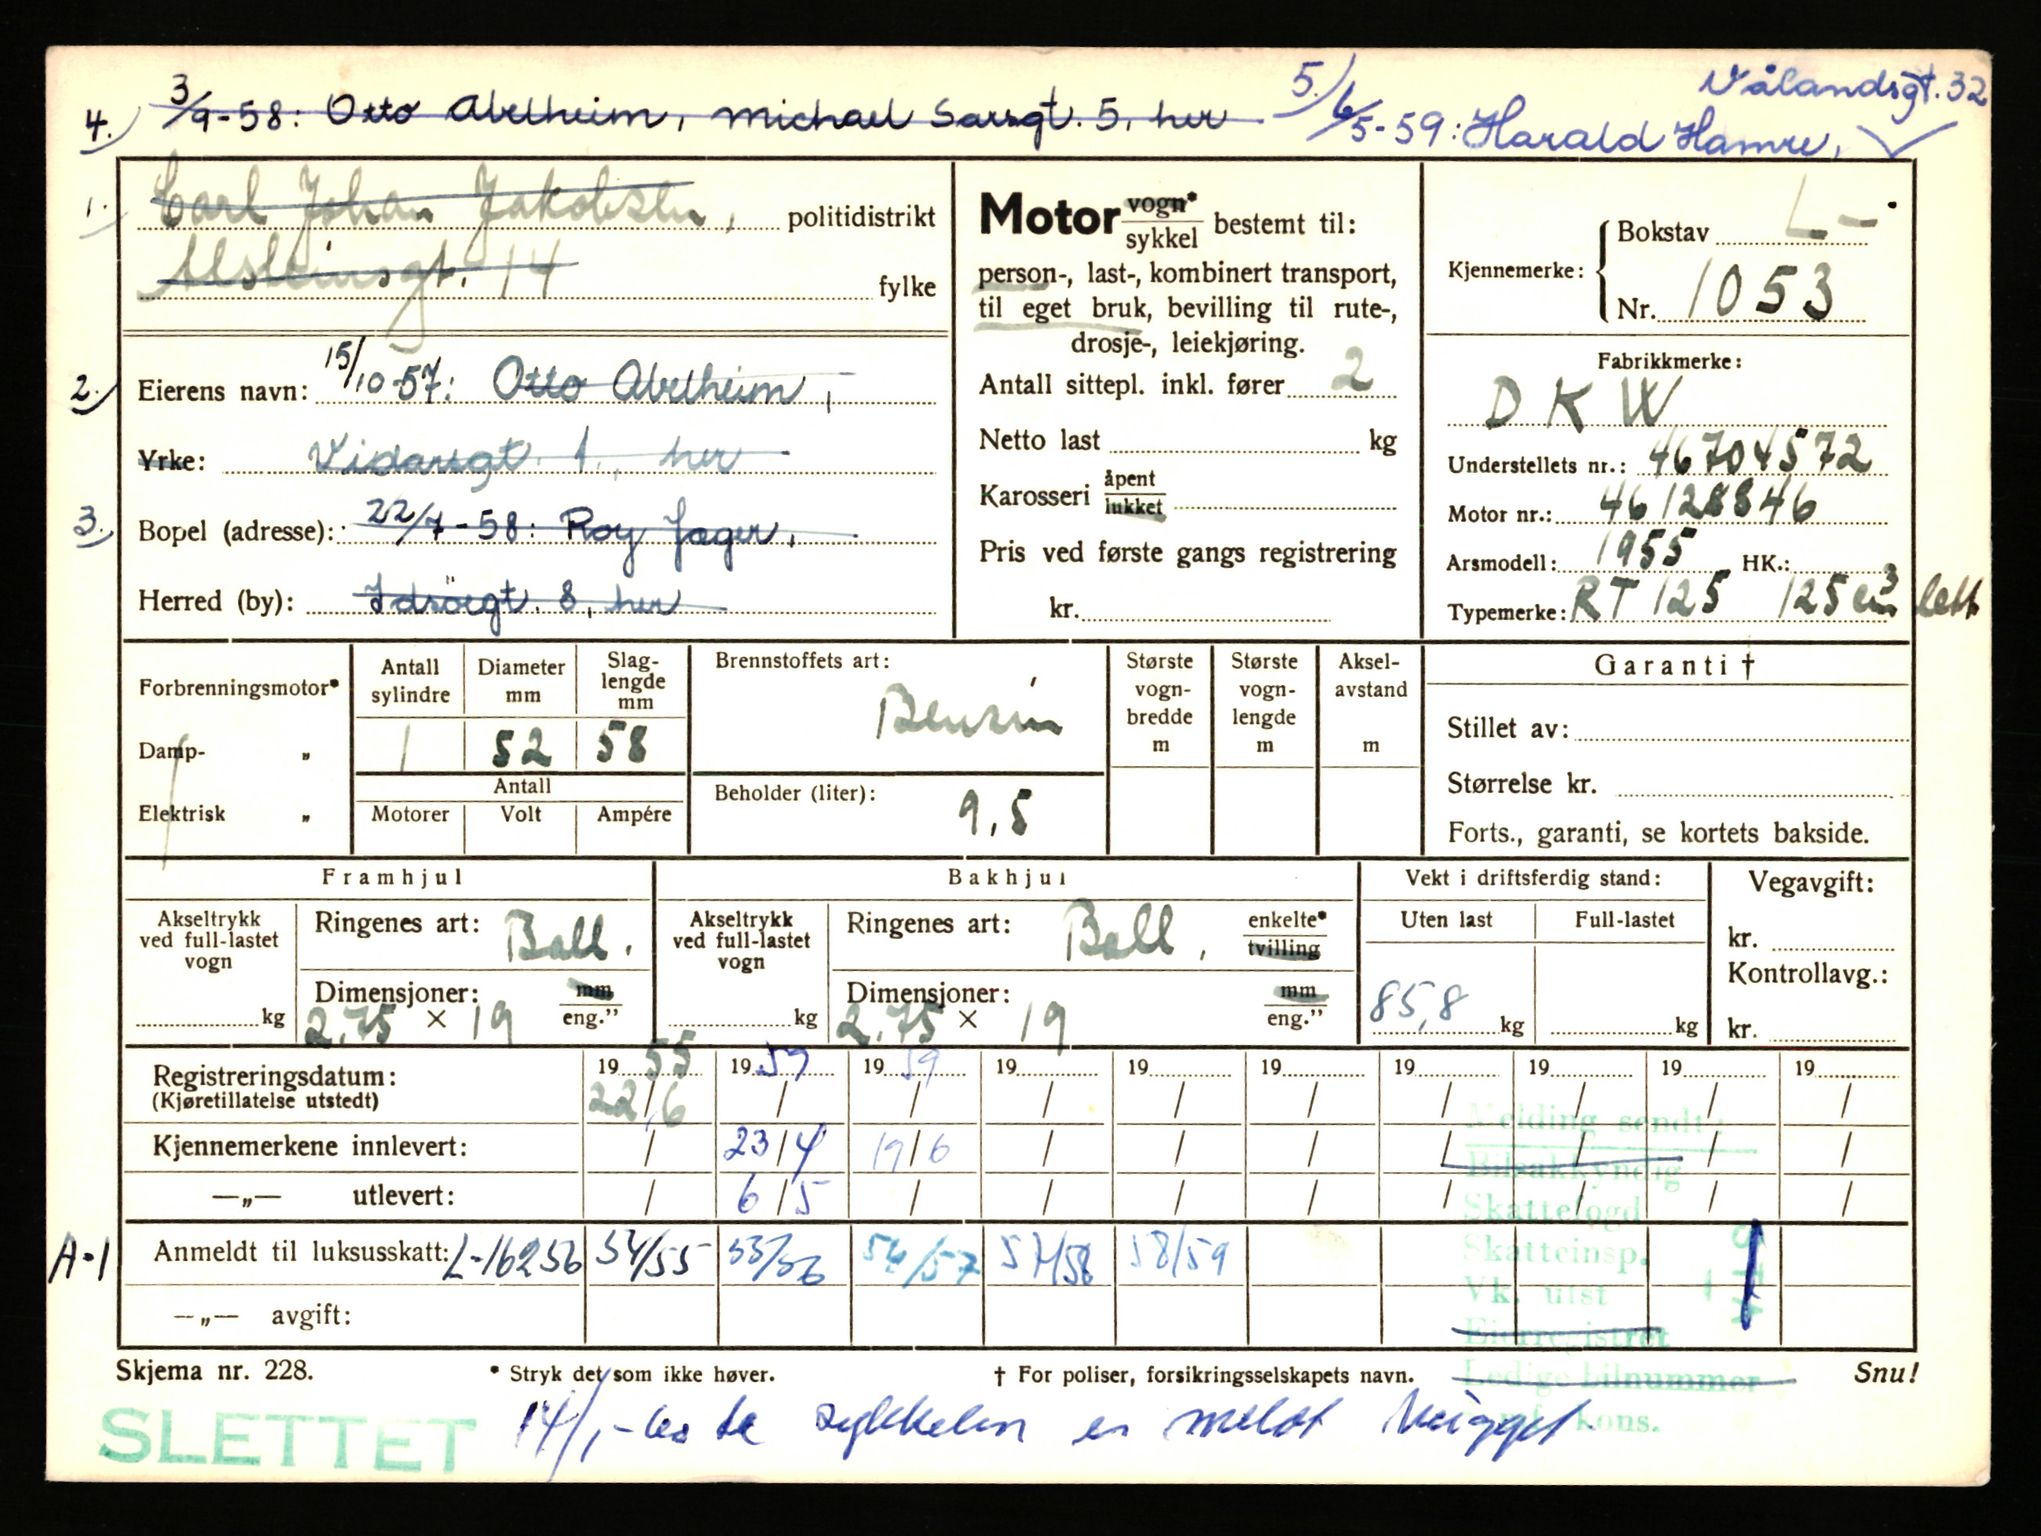 4. 3/9-58: Otto Abelheim, Michael Sarsgt. 5, her
5. 6/5-59: Harald Hamre, Vålandsgt. 32
1. Carl Johan Jakobsen, politidistrikt
14 fylke
2. Eierens navn: 15/10-57: Otto Abelheim,
Yrke: Vidarsgt. 1, her
3. Bopel (adresse): 22/7-58: Roy Jæger,
Herred (by): Idsöegt. 8, her
Motor vogn* sykkel bestemt til:
person-, last-, kombinert transport,
til eget bruk, bevilling til rute-,
drosje-, leiekjøring.
Antall sittepl. inkl. fører 2
Netto last kg
Karosseri åpent lukket
Pris ved første gangs registrering
kr.
Kjennemerke: Bokstav L-
Nr. 1053
Fabrikkmerke:
DKW
Understellets nr.: 46704572
Motor nr.: 46128846
Årsmodell: 1955 HK.:
Typemerke: RT 125 125 cm3 lett
Forbrenningsmotor*
Damp- „
Elektrisk „
Antall sylindre Diameter mm Slag-lengde mm
1 52 58
Antall
Motorer Volt Ampére
Brennstoffets art:
Bensin
Beholder (liter): 9,5
Største vogn-bredde m
Største vogn-lengde m
Aksel-avstand m
Garanti †
Stillet av:
Størrelse kr.
Forts., garanti, se kortets bakside.
Framhjul
Akseltrykk ved full-lastet vogn kg
Ringenes art: Ball.
Dimensjoner: mm eng."
2,75 × 19
Bakhjul
Akseltrykk ved full-lastet vogn kg
Ringenes art: Ball. enkelte* tvilling
Dimensjoner: mm eng."
2,75 × 19
Vekt i driftsferdig stand:
Uten last Full-lastet
85,8 kg kg
Vegavgift:
kr.
Kontrollavg.:
kr.
Registreringsdatum: 1955 1959 1959 19 19 19 19 19 19 19
(Kjøretillatelse utstedt) 22/6 / / / / / / / / /
Kjennemerkene innlevert: / 23/4 19/6 / / / / / / /
—„— utlevert: / 6/5 / / / / / / / /
A-1 Anmeldt til luksusskatt: L-16256 54/55 55/56 56/57 57/58 58/59
—„— avgift:
Melding sendt:
Bilsakkyndig
Skattefogd
Skatteinsp.
Vk. utst
Eierregistret
Ledige bilnummer
kons.
Skjema nr. 228. * Stryk det som ikke høver. † For poliser, forsikringsselskapets navn. Snu!
SLETTET
sykkelen er meldt hugget